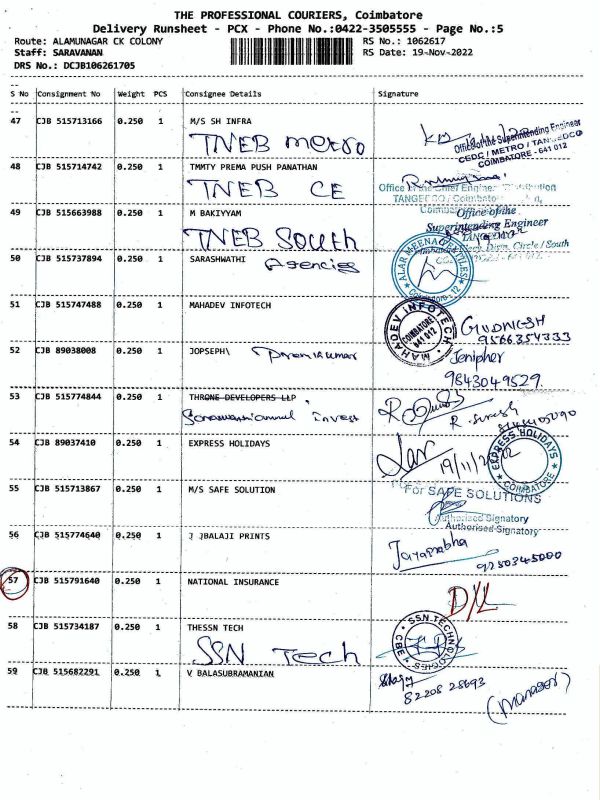 THE PROFESSIONAL COURIERS, Coimbatore
Delivery Runsheet - PCX - Phone No.:0422-3505555 - Page No.:5
Route: ALAMUNAGAR CK COLONY
RS No.: 1062617
Staff: SARAVANAN
RS Date: 19-Nov-2022
DRS No.: DCJB106261705
S No Consignment No Weight PCS Consignee Details Signature
47 CJB 515713166 0.250 1 M/S SH INFRA
TNEB metro
Office of the Superintending Engineer
CEDC / METRO / TANGEDCO
COIMBATORE - 641 012
48 CJB 515714742 0.250 1 TMMTY PREMA PUSH PANATHAN
TNEB CE
Office of the Chief Engineer Distribution
TANGEDCO / Coimbatore
49 CJB 515663988 0.250 1 M BAKIYYAM
TNEB South
Office of the
Superintending Engineer
TANGEDCO
Circle / South
50 CJB 515737894 0.250 1 SARASHWATHI
Agencies
Coimbatore - 12
51 CJB 515747488 0.250 1 MAHADEV INFOTECH
MAHADEV INFOTECH
COIMBATORE
641 012
9566354333
52 CJB 89038008 0.250 1 JOPSEPH\
Jenipher
9843049529
53 CJB 515774844 0.250 1 THRONE DEVELOPERS LLP
invest
R. Suresh
54 CJB 89037410 0.250 1 EXPRESS HOLIDAYS
19/11/2002
EXPRESS HOLIDAYS
COIMBATORE
55 CJB 515713867 0.250 1 M/S SAFE SOLUTION
For SAFE SOLUTIONS
Authorised Signatory
Authorised Signatory
56 CJB 515774640 0.250 1 J JBALAJI PRINTS
Jayaprabha
9250345000
57 CJB 515791640 0.250 1 NATIONAL INSURANCE
D/L
58 CJB 515734187 0.250 1 THESSN TECH
SSN Tech
SSN TECHNOLOGIES
CBE
59 CJB 515682291 0.250 1 V BALASUBRAMANIAN
82208 28693
(Manager)